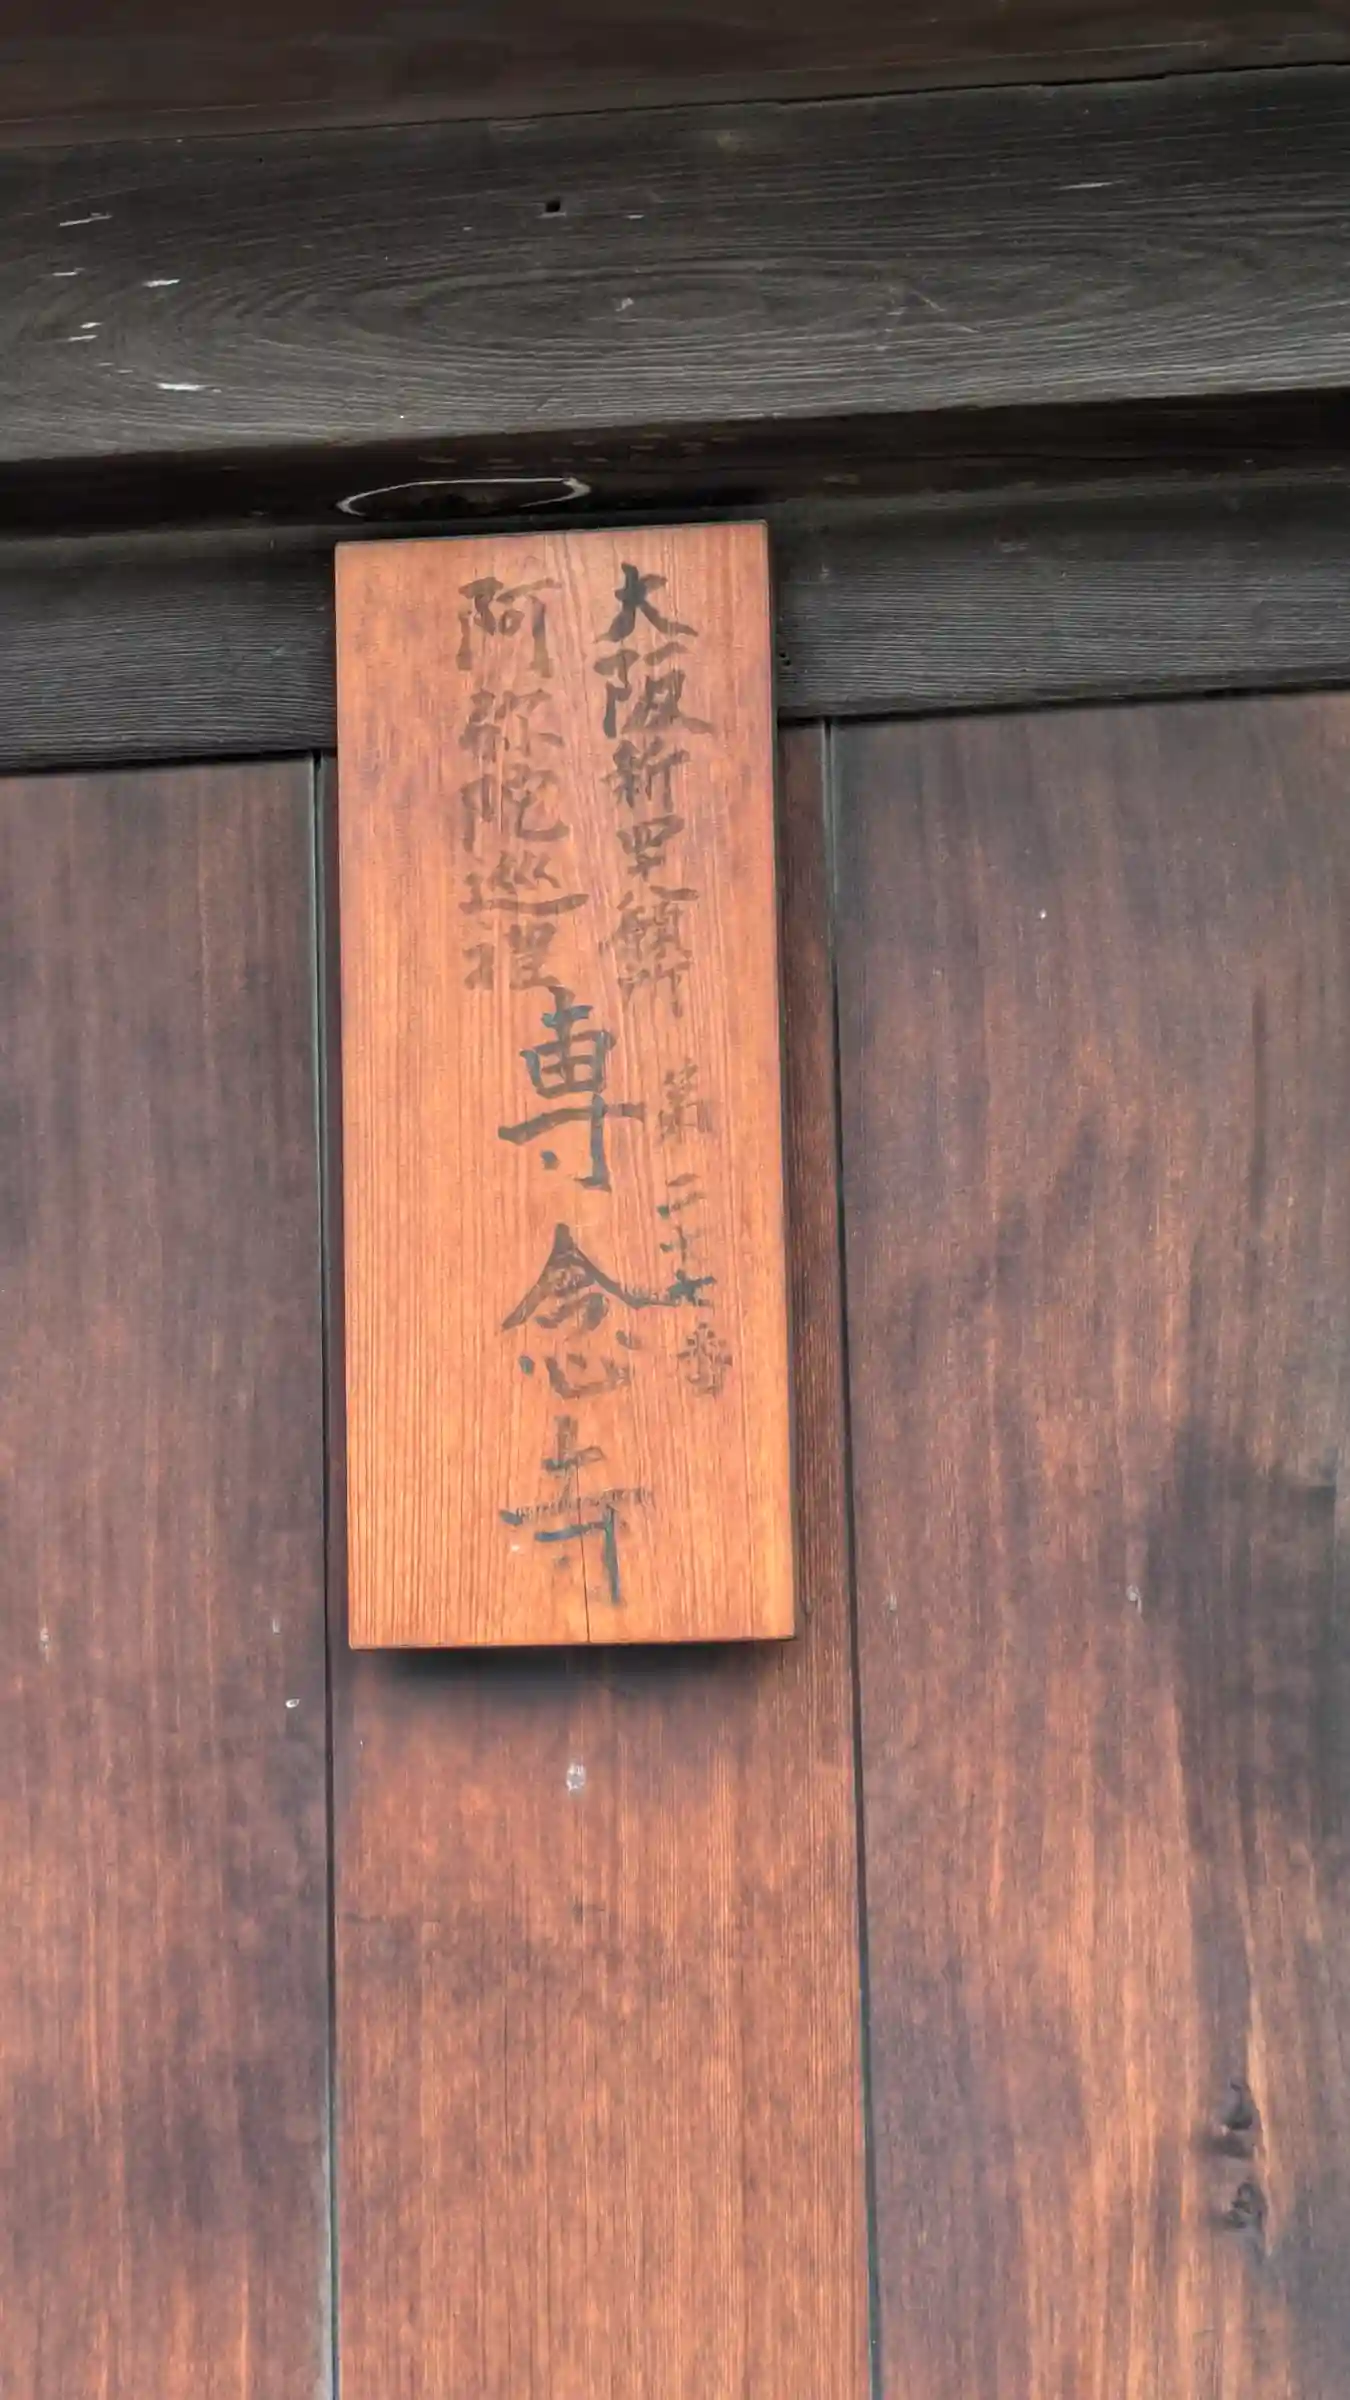 大阪新四十八願所
第二十七番
阿弥陀巡礼
専念寺